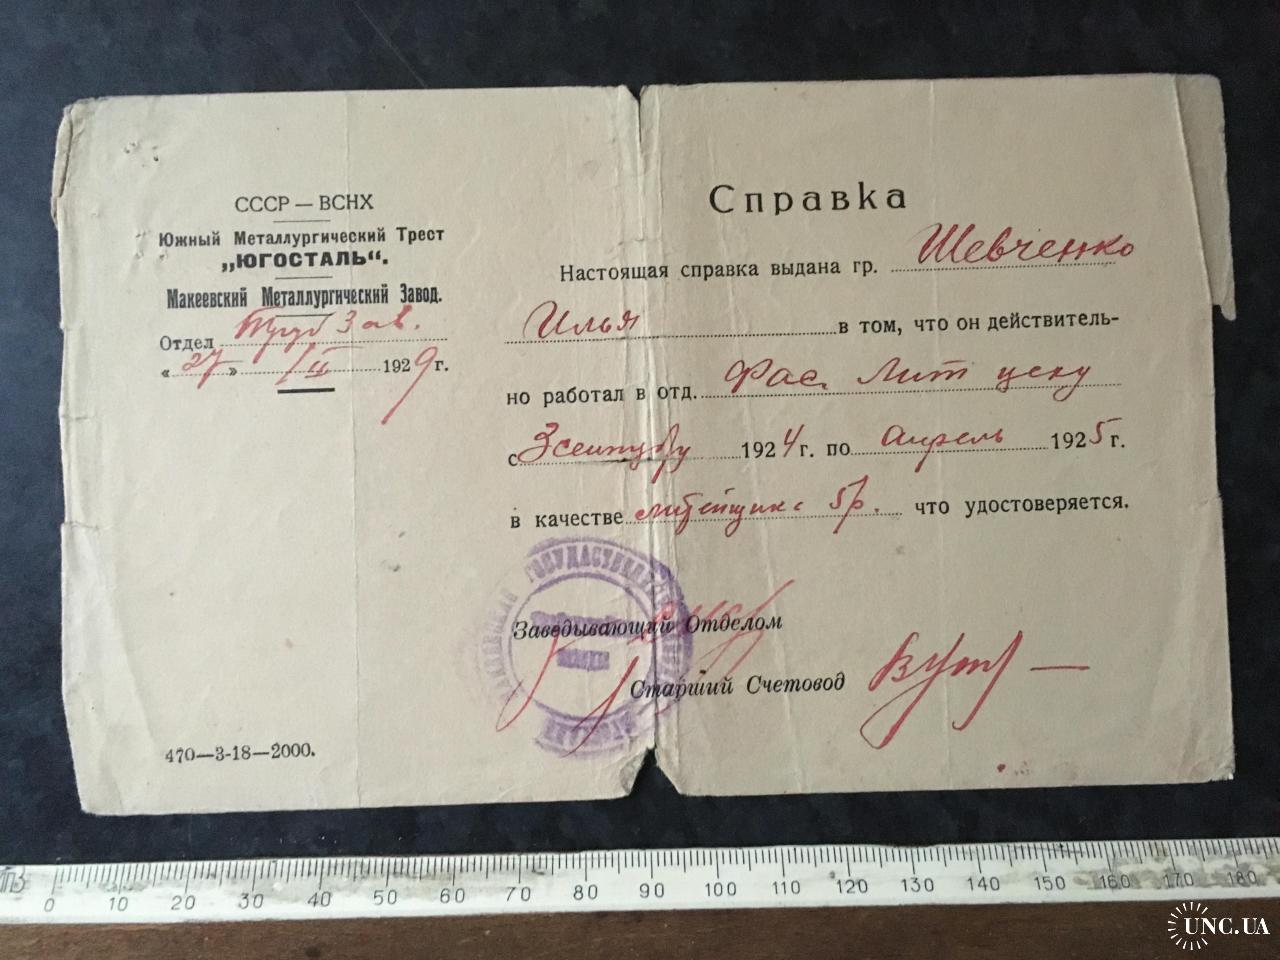 СССР — ВСНХ
Южный Металлургический Трест
„ЮГОСТАЛЬ“.
Макеевский Металлургический Завод.
Отдел Труб Зав.
« 27 » / II 1929 г.
470—3-18—2000.
Справка
Настоящая справка выдана гр. Шевченко
Илья в том, что он действитель-
но работал в отд. Фас. Лит цеху
с 3 сентября 1924 г. по Апрель 1925 г.
в качестве литейщика 5 р. что удостоверяется.
Заведывающий Отделом
Старший Счетовод
0 10 20 30 40 50 60 70 80 90 100 110 120 130 140 150 160 170 180
UNC.UA